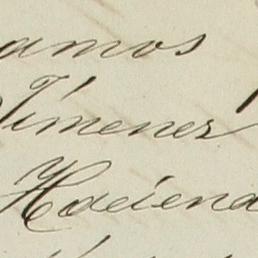 amos
Jimenez
Haciend